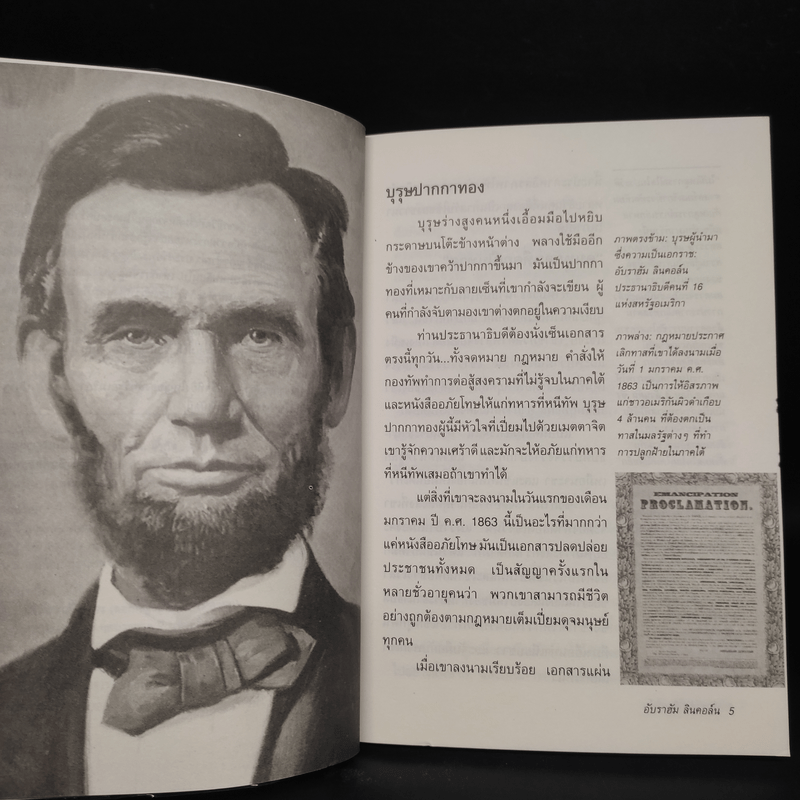 บุรุษปากกาทอง
บุรุษร่างสูงคนหนึ่งเอื้อมมือไปหยิบ
กระดาษบนโต๊ะข้างหน้าต่าง พลางใช้มืออีก
ข้างของเขาคว้าปากกาขึ้นมา มันเป็นปากกา
ทองที่เหมาะกับลายเซ็นที่เขากำลังจะเขียน ผู้
คนที่กำลังจับตามองเขาต่างตกอยู่ในความเงียบ
ท่านประธานาธิบดีต้องนั่งเซ็นเอกสาร
ตรงนี้ทุกวัน...ทั้งจดหมาย กฎหมาย คำสั่งให้
กองทัพทำการต่อสู้สงครามที่ไม่รู้จบในภาคใต้
และหนังสืออภัยโทษให้แก่ทหารที่หนีทัพ บุรุษ
ปากกาทองผู้นี้มีหัวใจที่เปี่ยมไปด้วยเมตตาจิต
เขารู้จักความเศร้าดี และมักจะให้อภัยแก่ทหาร
ที่หนีทัพเสมอถ้าเขาทำได้
แต่สิ่งที่เขาจะลงนามในวันแรกของเดือน
มกราคม ปี ค.ศ. 1863 นี้เป็นอะไรที่มากกว่า
แค่หนังสืออภัยโทษ มันเป็นเอกสารปลดปล่อย
ประชาชนทั้งหมด เป็นสัญญาครั้งแรกใน
หลายชั่วอายุคนว่า พวกเขาสามารถมีชีวิต
อย่างถูกต้องตามกฎหมายเต็มเปี่ยมดุจมนุษย์
ทุกคน
เมื่อเขาลงนามเรียบร้อย เอกสารแผ่น
ภาพตรงข้าม: บุรุษผู้นำมา
ซึ่งความเป็นเอกราช:
อับราฮัม ลินคอล์น
ประธานาธิบดีคนที่ 16
แห่งสหรัฐอเมริกา
ภาพล่าง: กฎหมายประกาศ
เลิกทาสที่เขาได้ลงนามเมื่อ
วันที่ 1 มกราคม ค.ศ.
1863 เป็นการให้อิสรภาพ
แก่ชาวอเมริกันผิวดำเกือบ
4 ล้านคน ที่ต้องตกเป็น
ทาสในมลรัฐต่างๆ ที่ทำ
การปลูกฝ้ายในภาคใต้
EMANCIPATION
PROCLAMATION.
อับราฮัม ลินคอล์น 5